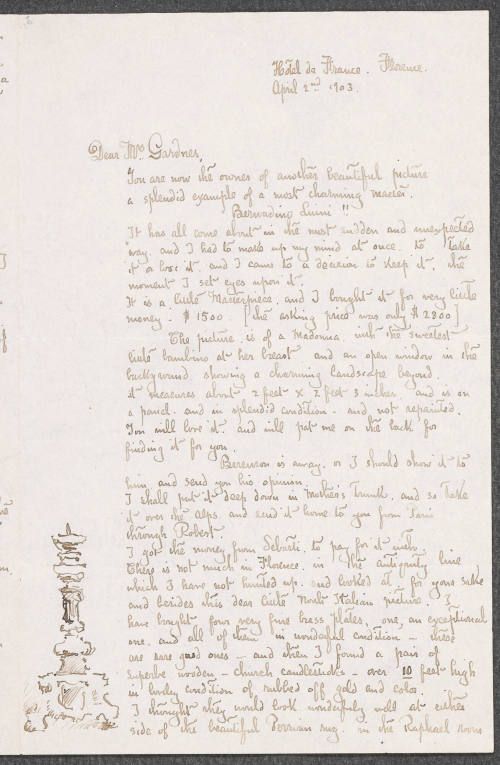 Hotel de France. Florence.
April 2nd 1903.
Dear Mrs Gardner,
You are now the owner of another beautiful picture
a splendid example of a most charming master.
Bernadino Luini !!
It has all come about in the most sudden and unexpected
way. and I had to make up my mind at once. to take
it or lose it. and I came to a decision to keep it. the
moment I set eyes upon it.
It is a little Masterpiece. and I bought it for very little
money. $1500. [the asking price was only $2800]
The picture. is of a Madonna. with the sweetest
little bambino at her breast. and an open window in the
background. showing a charming landscape beyond
it measures about 2 feet x 2 feet 3 inches. and is on
a panel. and in splendid condition. and not repainted.
You will love it. and will pat me on the back for
finding it for you.
Berenson is away. or I should show it to
him. and send you his opinion.
I shall put it deep down in Mother's trunk. and so take
it over the Alps. and send it home to you from Paris
through Robert.
I got the money from Sebasti. to pay for it with.
There is not much in Florence. in the antiquity line
which I have not hunted up. and looked at for your sake
and besides this dear little North Italian picture. I
have bought four very fine brass plates. one, an exceptional
one. and all of them in wonderful condition – these
are rare good ones – and then I found a pair of
superbe wooden – church candlesticks – over 10 feet high
in lovley condition of rubbed off gold and color.
I thought they would look wonderfuly well at either
side of the beautiful Persian rug. in the Raphael room